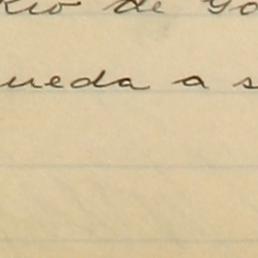 Rio de Go
ueda a s